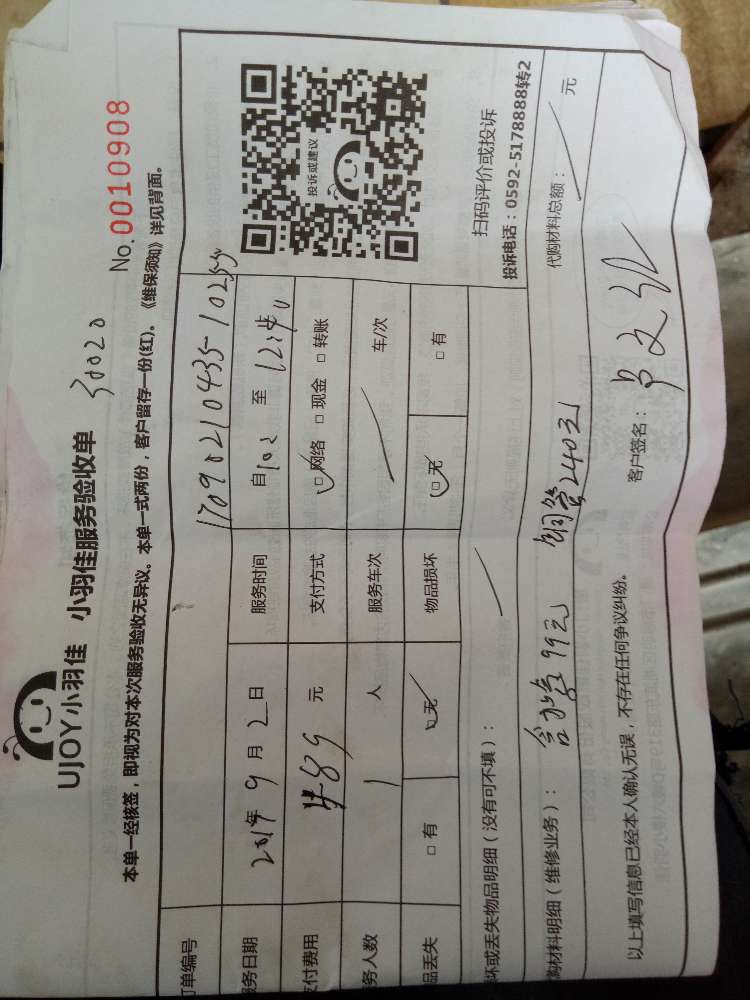 UJOY小羽佳 小羽佳服务验收单
No.0010908
本单一经核签，即视为对本次服务验收无异议。本单一式两份，客户留存一份(红)。《维保须知》详见背面。
订单编号
务日期 2017年 9 月 2 日 服务时间 自 至 12:40
付费用 489 元 支付方式 □网络 □现金 □转账
务人数 1 人 服务车次 车/次
品丢失 □有 □无 物品损坏 □无 □有
投诉或建议
扫码评价或投诉
投诉电话：0592-5178888转2
坏或丢失物品明细（没有可不填）：
购材料明细（维修业务）： 99元 铜管240元 代购材料总额： 元
以上填写信息已经本人确认无误，不存在任何争议纠纷。 客户签名：